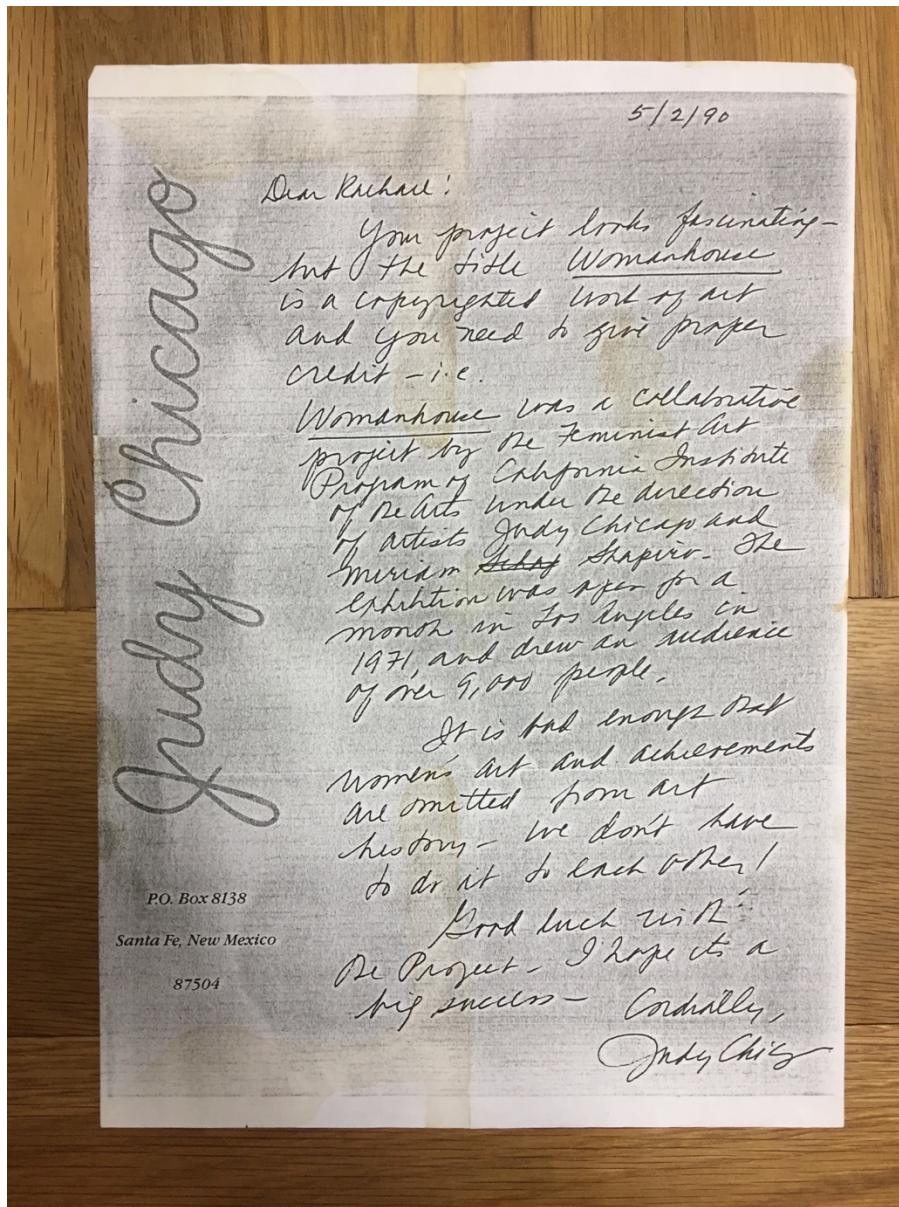 5/2/90
Judy Chicago
Dear Rachael!
Your project looks fascinating –
but the title Womanhouse
is a copyrighted work of art
and you need to give proper
credit – i.e.
Womanhouse was a collaborative
project by the Feminist Art
Program of California Institute
of the Arts under the direction
of artists Judy Chicago and
Miriam Schap Shapiro. The
exhibition was open for a
month in Los Angeles in
1971, and drew an audience
of over 9,000 people.
It is bad enough that
women's art and achievements
are omitted from art
history – we don't have
to do it to each other!
Good luck with
the Project – I hope its a
big success –
Cordially,
Judy Chicago
P.O. Box 8138
Santa Fe, New Mexico
87504